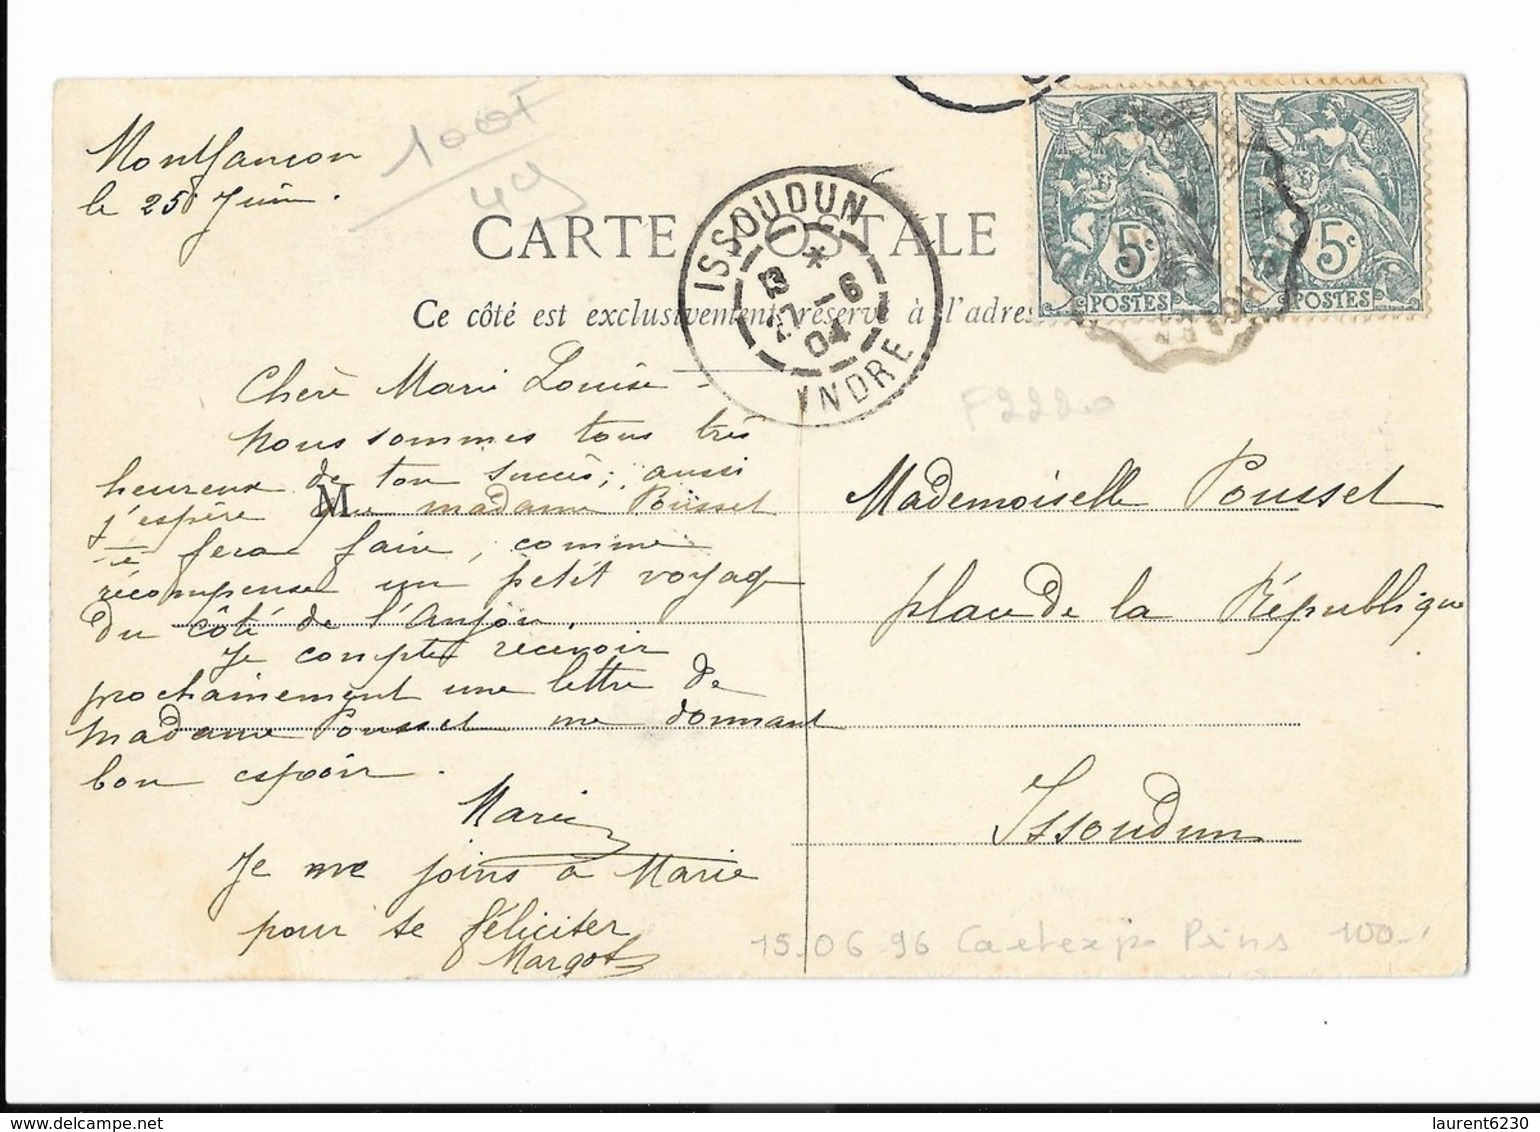 Montfaucon
le 25 Juin.
100F
49
CARTE POSTALE
Ce côté est exclusivement réservé à l'adres
ISSOUDUN
13 *
27 -6
04
INDRE
5c
POSTES
5c
POSTES
F2220
Chère Marie Louise -
Nous sommes tous très
heureux de ton succès; aussi
j'espère que madame Pousset
te fera faire, comme
récompense un petit voyage
du côté de l'Anjou.
Je compte recevoir
prochainement une lettre de
madame Pousset me donnant
bon espoir.
Marie
Je me joins à Marie
pour te féliciter
Margot
M
Mademoiselle Pousset
place de la République
Issoudun
15.06.96 Cartexp Paris 100
delcampe.net
laurent6230